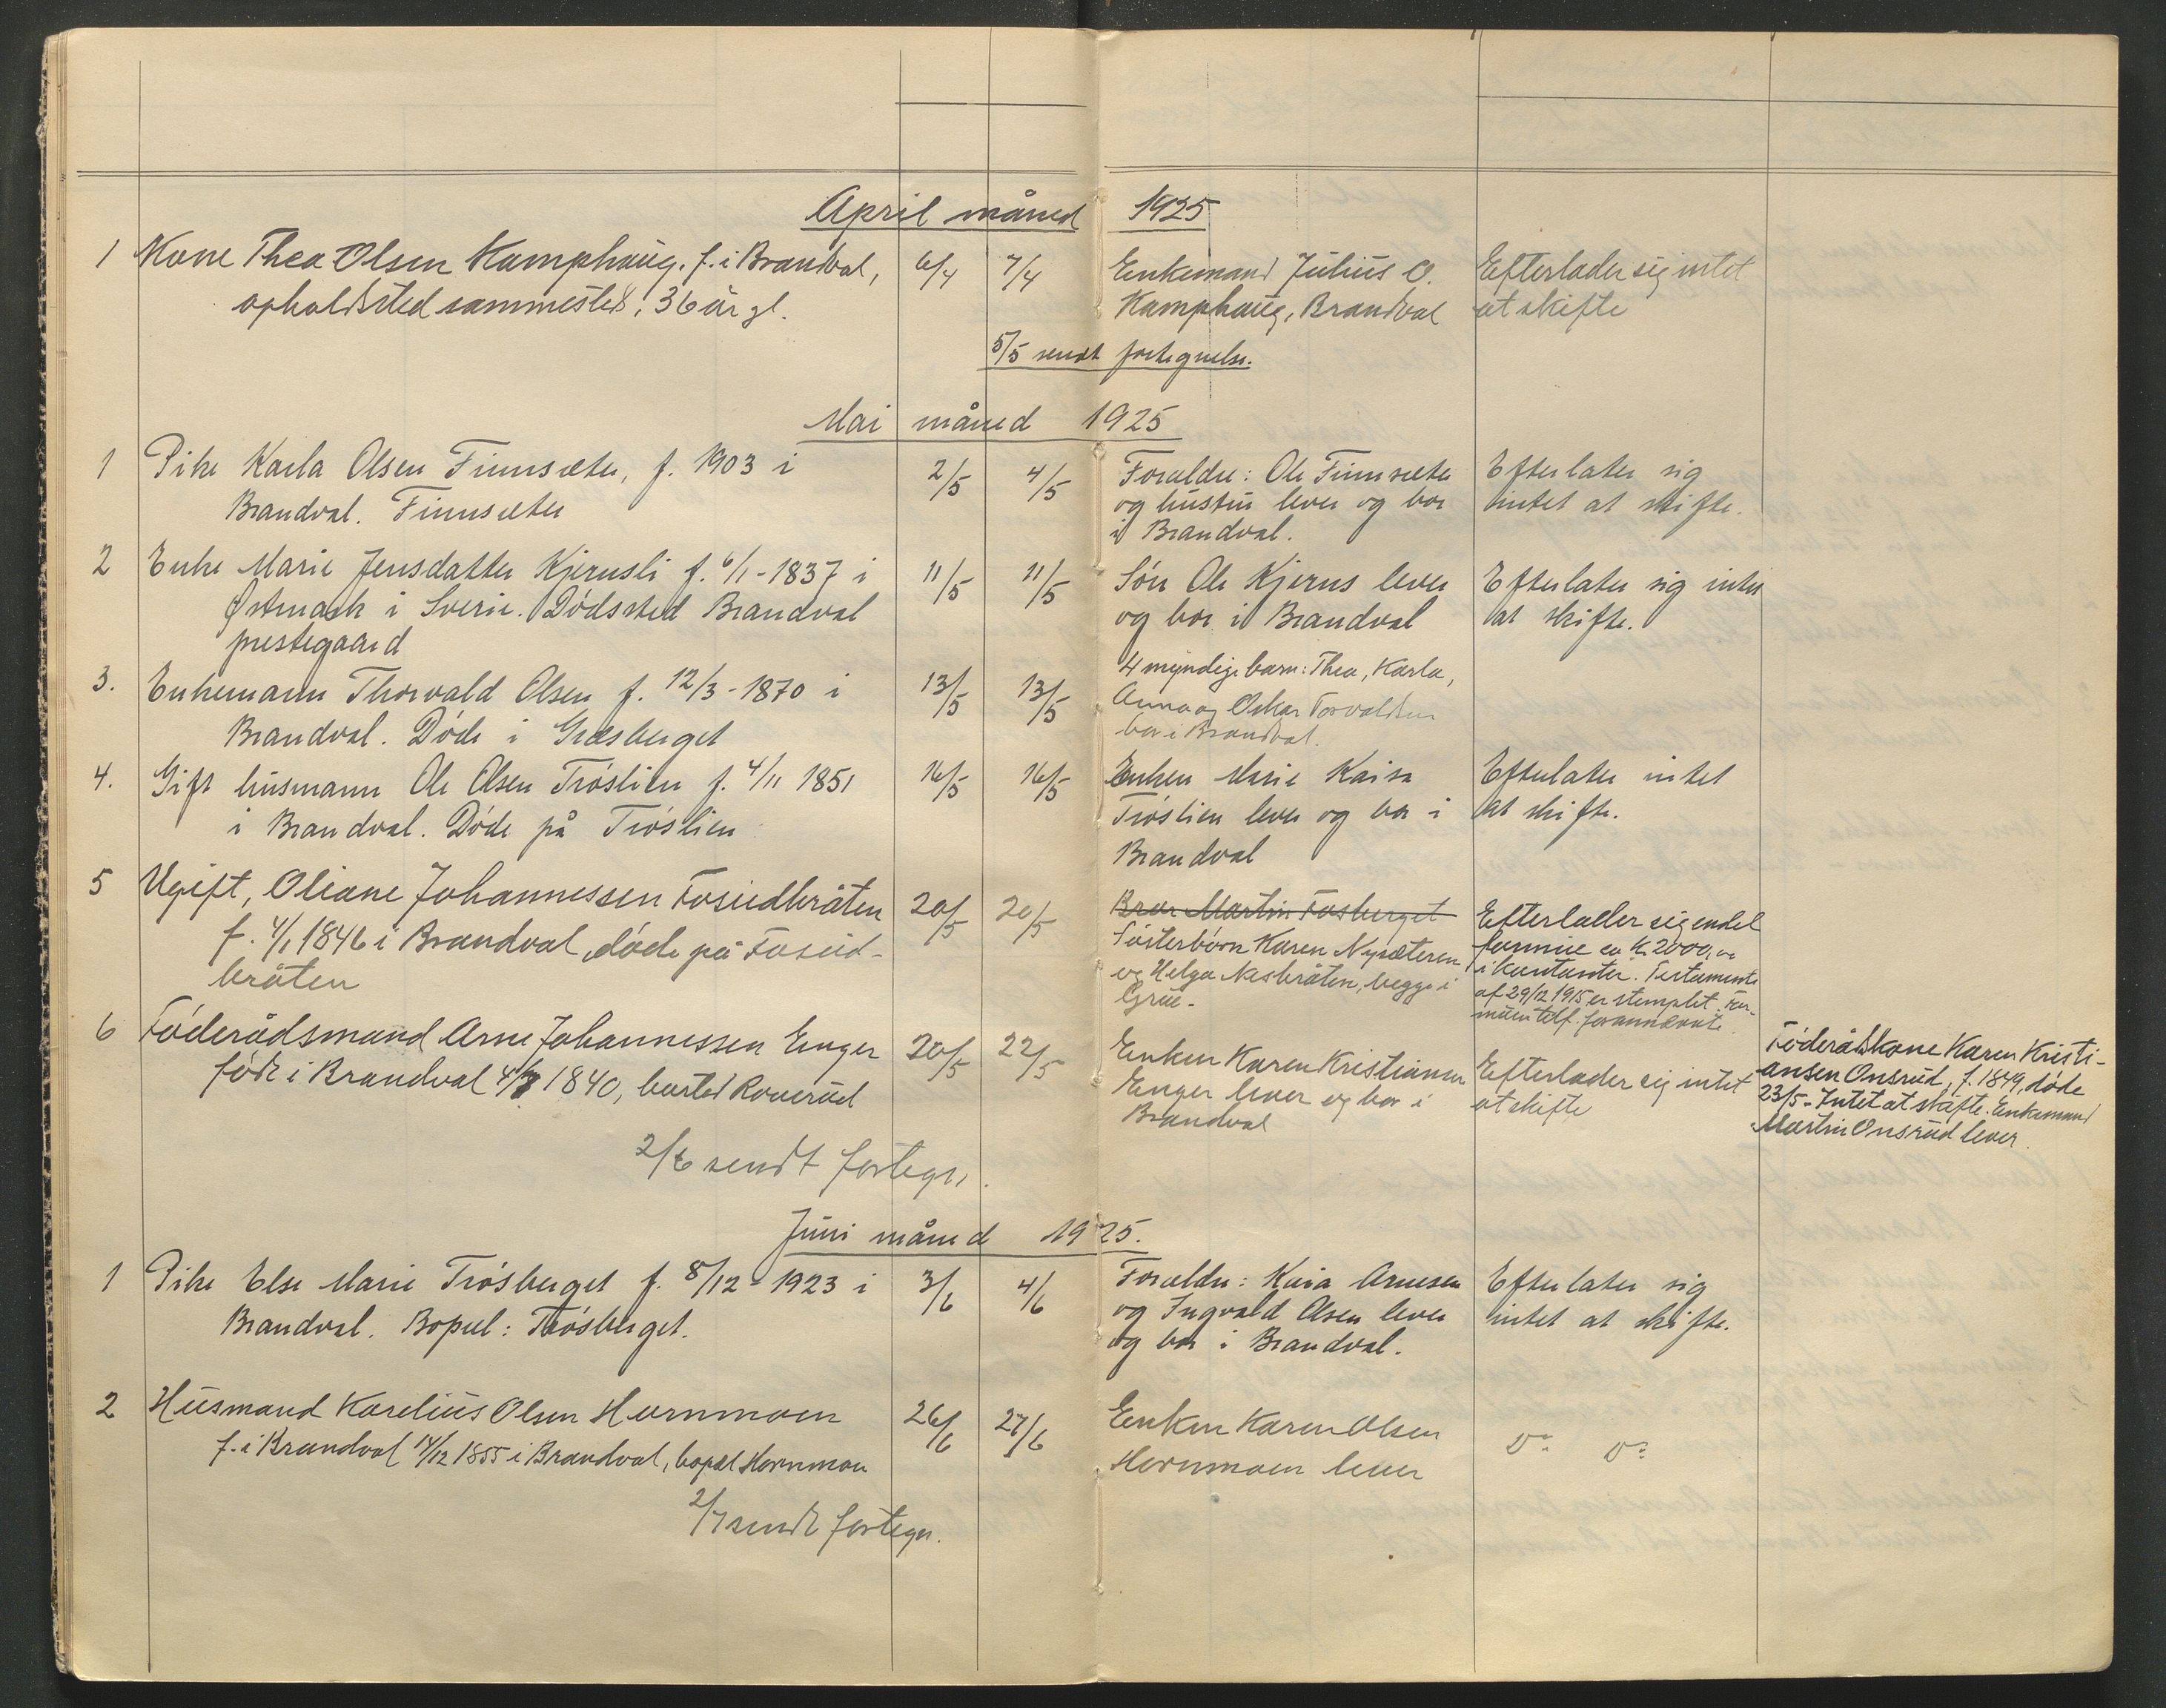 April måned 1925
1 Kone Thea Olsen Kamphaug. f. i Brandval, 6/4 7/4 Enkemand Julius O. Efterlader sig intet
opholdsted sammesteds, 36 år gl. Kamphaug, Brandval at skifte
5/5 sendt fortegnelse.
Mai måned 1925
1 Pike Karla Olsen Finnsæter, f. 1903 i 2/5 4/5 Foræeldre: Ole Finnsæter Efterlater sig
Brandval. Finnsæter og hustru lever og bor intet at skifte.
i Brandval.
2 Enke Marie Jensdatter Kjernsli f. 6/1-1837 i 11/5 11/5 Søn Ole Kjerns lever Efterlater sig intet
Østmark i Sverie. Dødssted Brandval og bor i Brandval at skifte.
prestegaard
3. Enkemann Thorvald Olsen f. 12/3-1870 i 13/5 13/5 4 myndige barn: Thea, Karla,
Brandval. Døde i Græsberget Anna og Oskar Torvaldsen
bor i Brandval.
4. Gift husmann Ole Olsen Trøslien f. 4/11 1851 16/5 16/5 Enken Marie Kaisa Efterlater intet
i Brandval. Døde på Trøslien Trøslien lever og bor i at skifte.
Brandval
5 Ugift, Oliane Johannessen 20/5 20/5 Bror Martin Fosberget Efterlader sig endel
f. 4/1 1846 i Brandval, døde på Søsterbørn Karen Nysæteren formue ca k. 2000,00
bråten og Helga Nesbråten, begge i i kontanter. Testamente
Grue. af 29/12 1915 er stemplet. For-
muen tilf. forannevnte.
6 Føderådsmand Arne Johannessen Enger 20/5 22/5 Enken Karen Kristiansen Efterlader sig intet Føderådskone Karen Kristi-
født i Brandval 1840, bosted Roverud Enger lever og bor i at skifte ansen Onsrud, f. 1849, døde
Brandval 23/5 - Intet at skifte. Enkemand
Martin Onsrud lever.
2/6 sendt fortegn.
Juni måned 1925.
1 Pike Else Marie Trøsberget f. 8/12-1923 i 3/6 4/6 Foræeldre: Kaia Arnesen Efterlater sig
Brandval. Bopæl: Trøsberget. og Ingvald Olsen lever intet at skifte.
og bor i Brandval.
2 Husmand Karelius Olsen Hornmoen 26/6 27/6 Enken Karen Olsen Do Do
f. i Brandval 14/12 1855 i Brandval, bopæl Hornmoen Hornmoen lever
2/7 sendt fortegn.